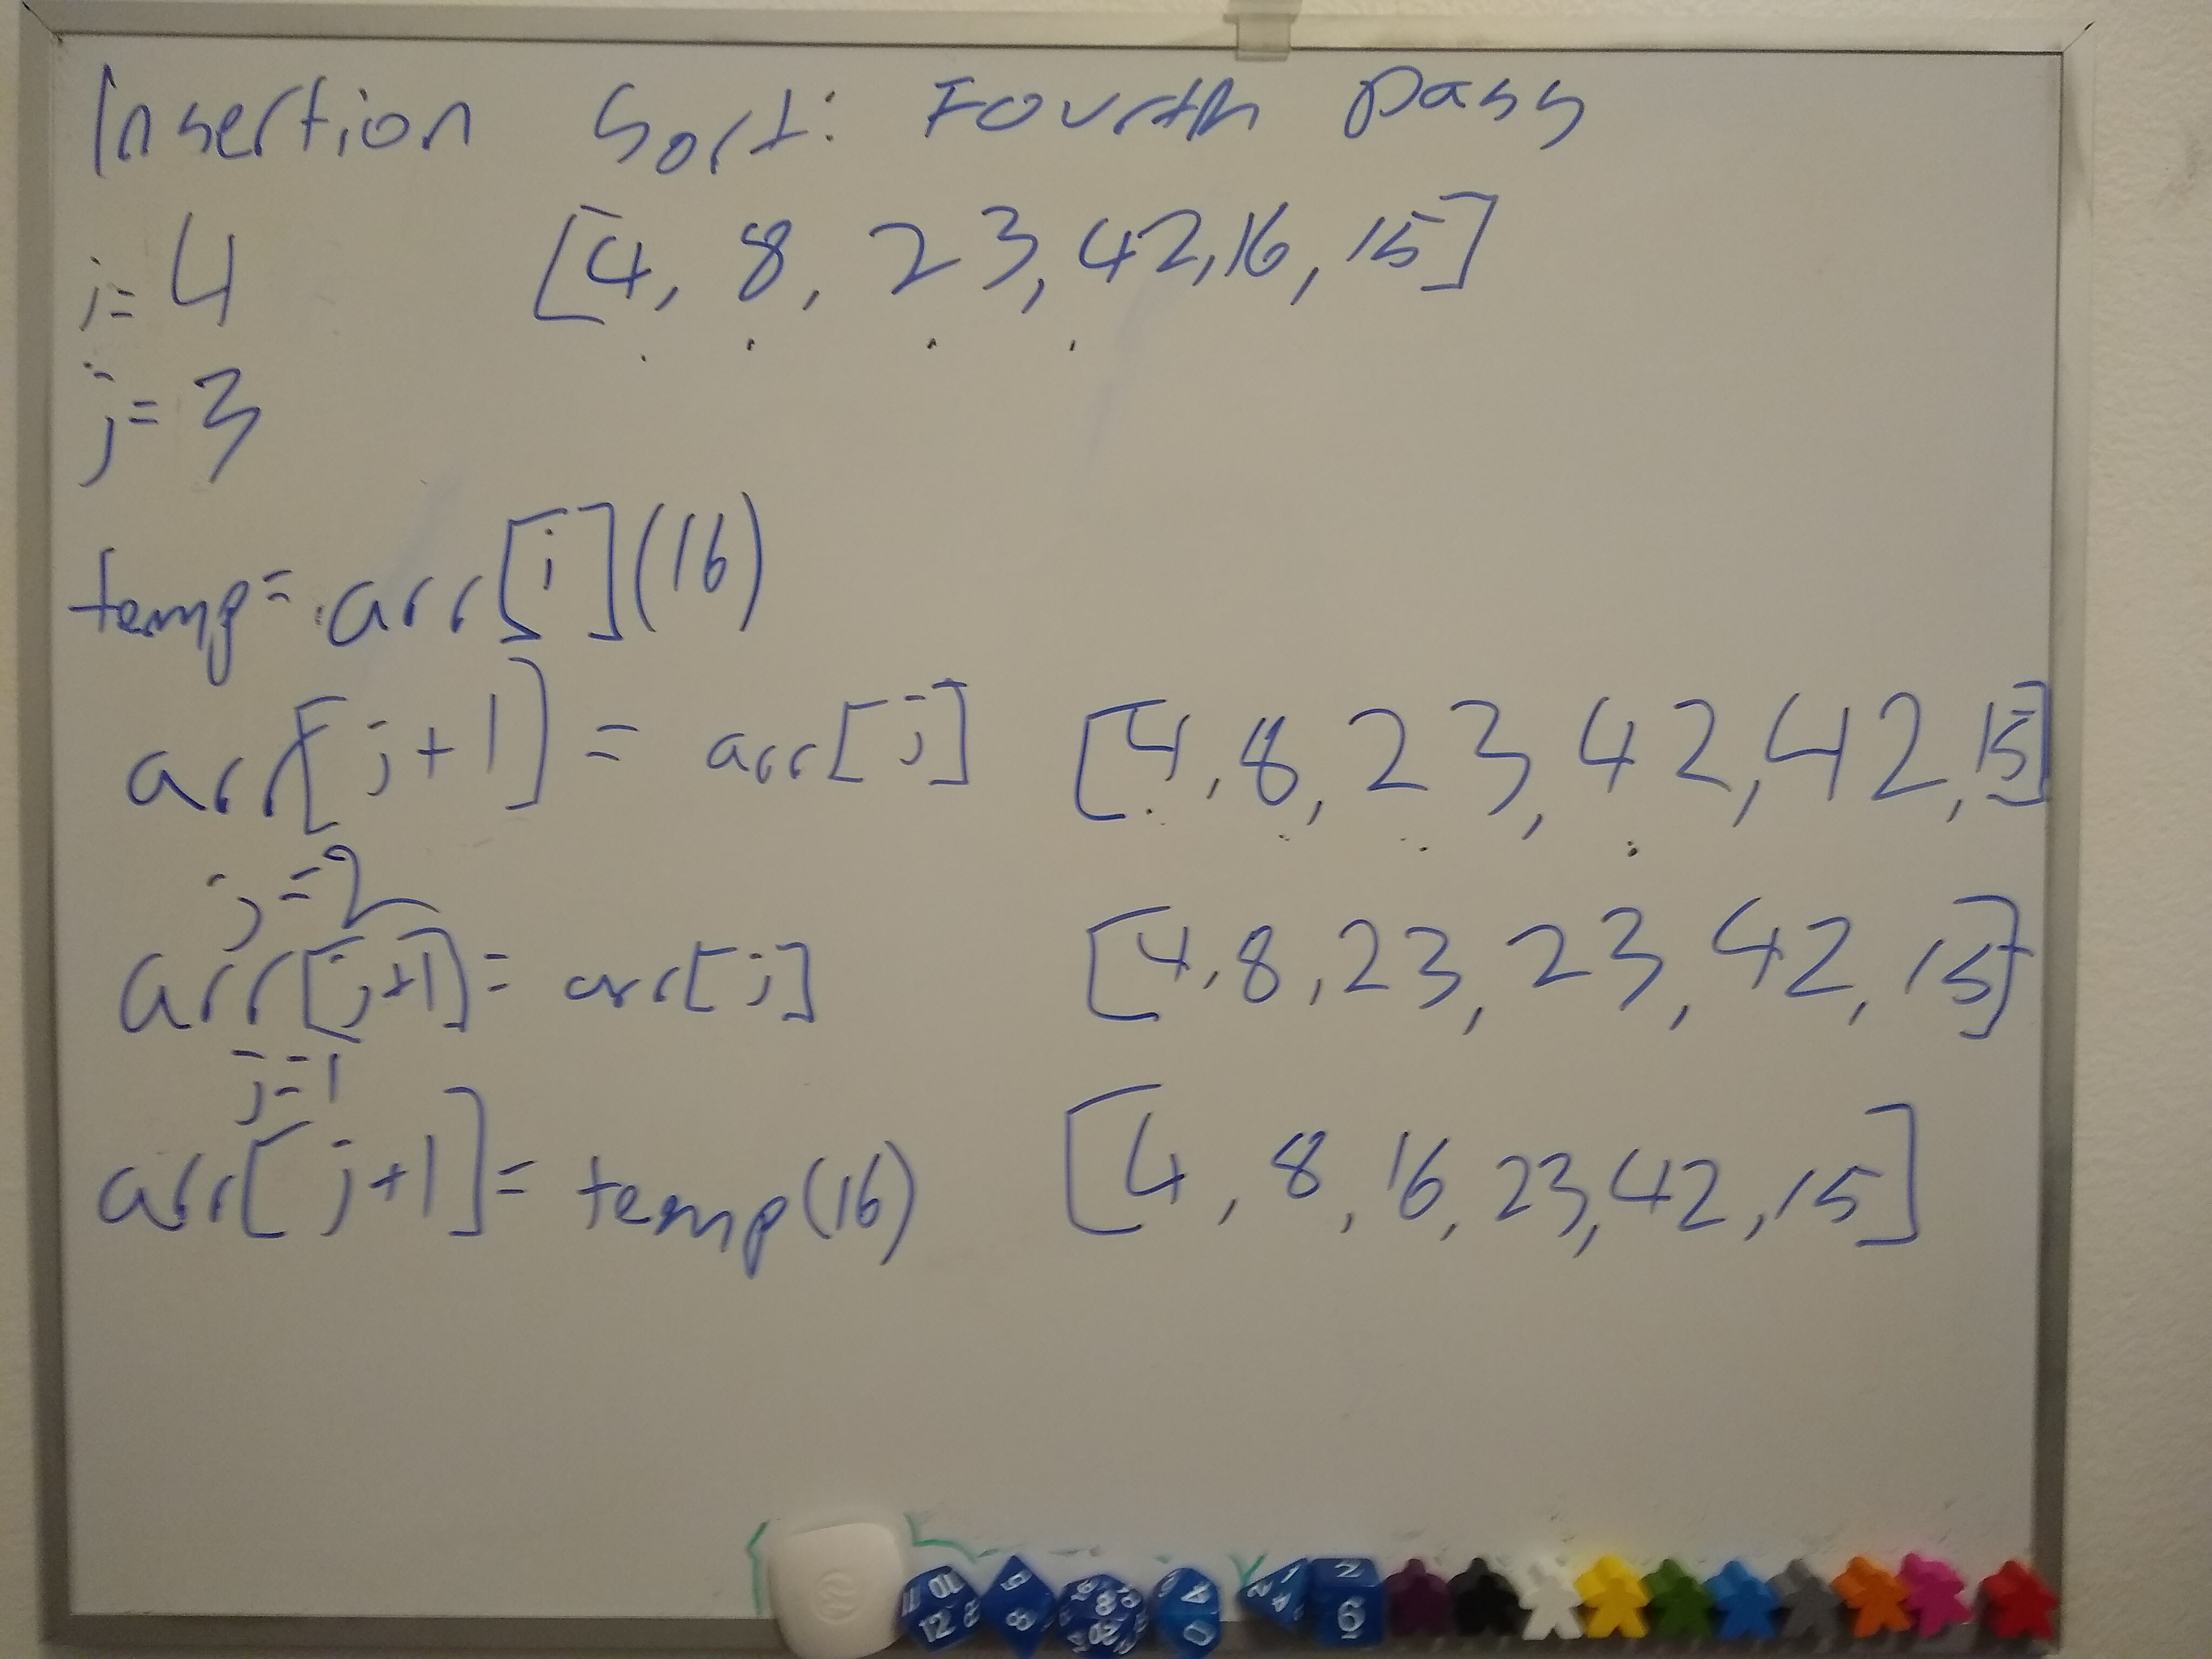 Insertion Sort: Fourth pass
i= 4 [4, 8, 23, 42, 16, 15]
j= 3
temp= arr[i](16)
arr[j+1] = arr[j] [4, 8, 23, 42, 42, 15]
j=2
arr[j+1]= arr[j] [4, 8, 23, 23, 42, 15]
j=1
arr[j+1]= temp(16) [4, 8, 16, 23, 42, 15]
12 8 8 4 0 2 1 4 2 6